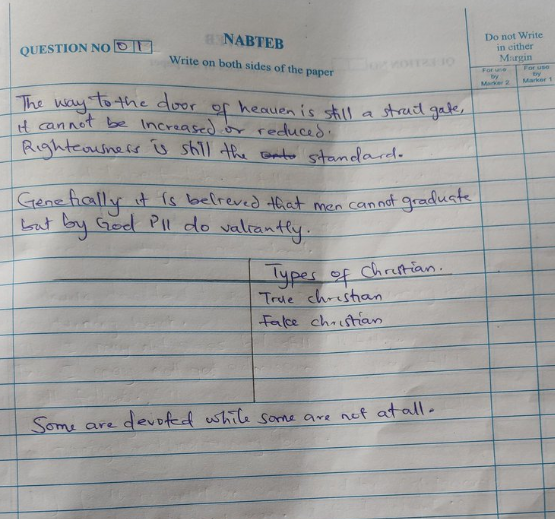 NABTEB
QUESTION NO 01
Write on both sides of the paper
Do not Write
in either
Margin
For use
by
Marker 2
For use
by
Marker 1
The way to the door of heaven is still a strait gate,
it cannot be increased or reduced.
Righteousness is still the standard.
Genetically it is believed that men cannot graduate
but by God I'll do valiantly.
Types of Christian.
True christian
Fake christian
Some are devoted while some are not at all.